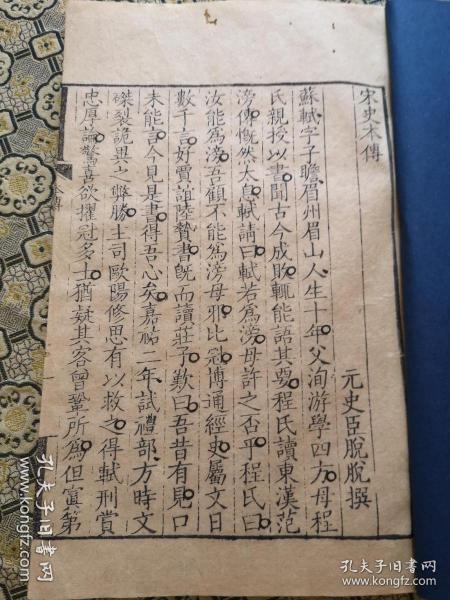 宋史本傳
元史臣脫脫撰
蘇軾字子瞻眉州眉山人生十年父洵游學四方母程
氏親授以書聞古今成敗輒能語其要程氏讀東漢范
滂傳慨然太息軾請曰軾若爲滂母許之否乎程氏曰
汝能爲滂吾顧不能爲滂母邪比冠博通經史屬文日
數千言好賈誼陸贄書旣而讀莊子歎曰吾昔有見口
未能言今見是書得吾心矣嘉祐二年試禮部方時文
磔裂詭異之弊勝主司歐陽修思有以救之得軾刑賞
忠厚論驚喜欲擢冠多士猶疑其客曾鞏所爲但寘第
孔夫子旧书网
www.kongfz.com
孔夫子旧书网
www.kongfz.com